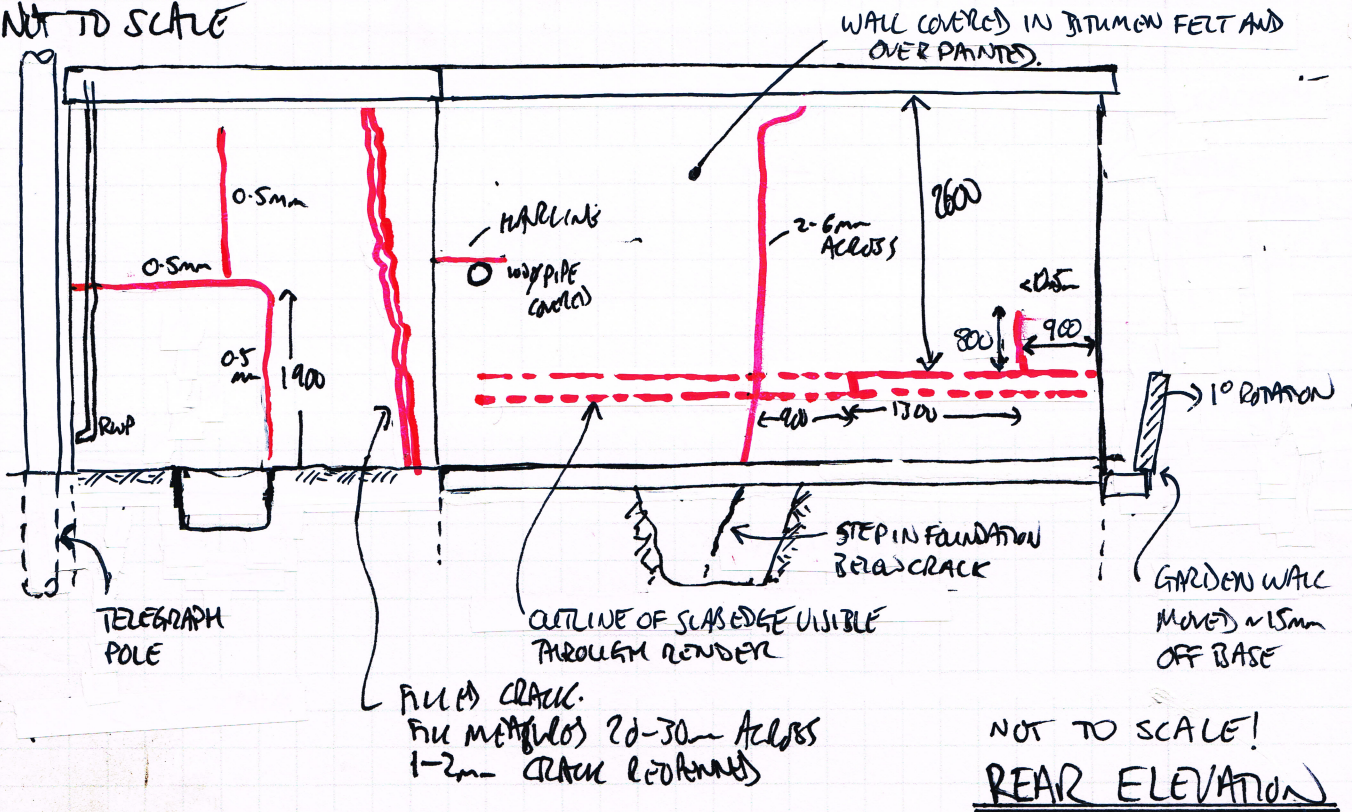 NOT TO SCALE
WALL COVERED IN BITUMEN FELT AND
OVER PAINTED.
0.5mm
0.5mm
0.5
mm
1900
RWP
HAIRLINE
PIPE
COVERED
2-6mm
ACROSS
2600
<0.5m
800
900
900
1300
1° ROTATION
STEP IN FOUNDATION
BELOW CRACK
GARDEN WALL
MOVED ~15mm
OFF BASE
TELEGRAPH
POLE
OUTLINE OF SLAB EDGE VISIBLE
THROUGH RENDER
FILLED CRACK.
FILL MEASURES 20-30mm ACROSS
1-2mm CRACK REOPENNED
NOT TO SCALE!
REAR ELEVATION